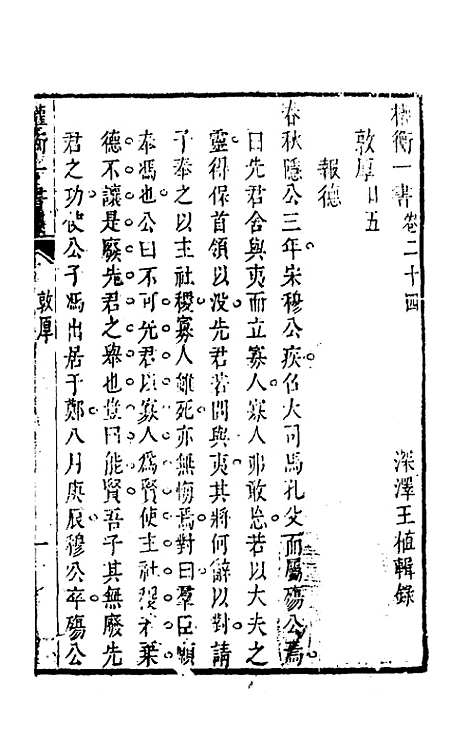 權衡一書卷二十四
深澤王植輯錄
敦厚日五
報德
春秋隱公三年宋穆公疾召大司馬孔父而屬殤公焉
曰先君舍與夷而立寡人寡人弗敢忘若以大夫之
靈得保首領以没先君若問與夷其將何辭以對請
子奉之以主社稷寡人雖死亦無悔焉對曰羣臣願
奉馮也公曰不可先君以寡人爲賢使主社稷若棄
德不讓是廢先君之舉也豈曰能賢吾子其無廢先
君之功使公子馮出居于鄭八月庚辰穆公卒殤公
權衡一書
敦厚
一